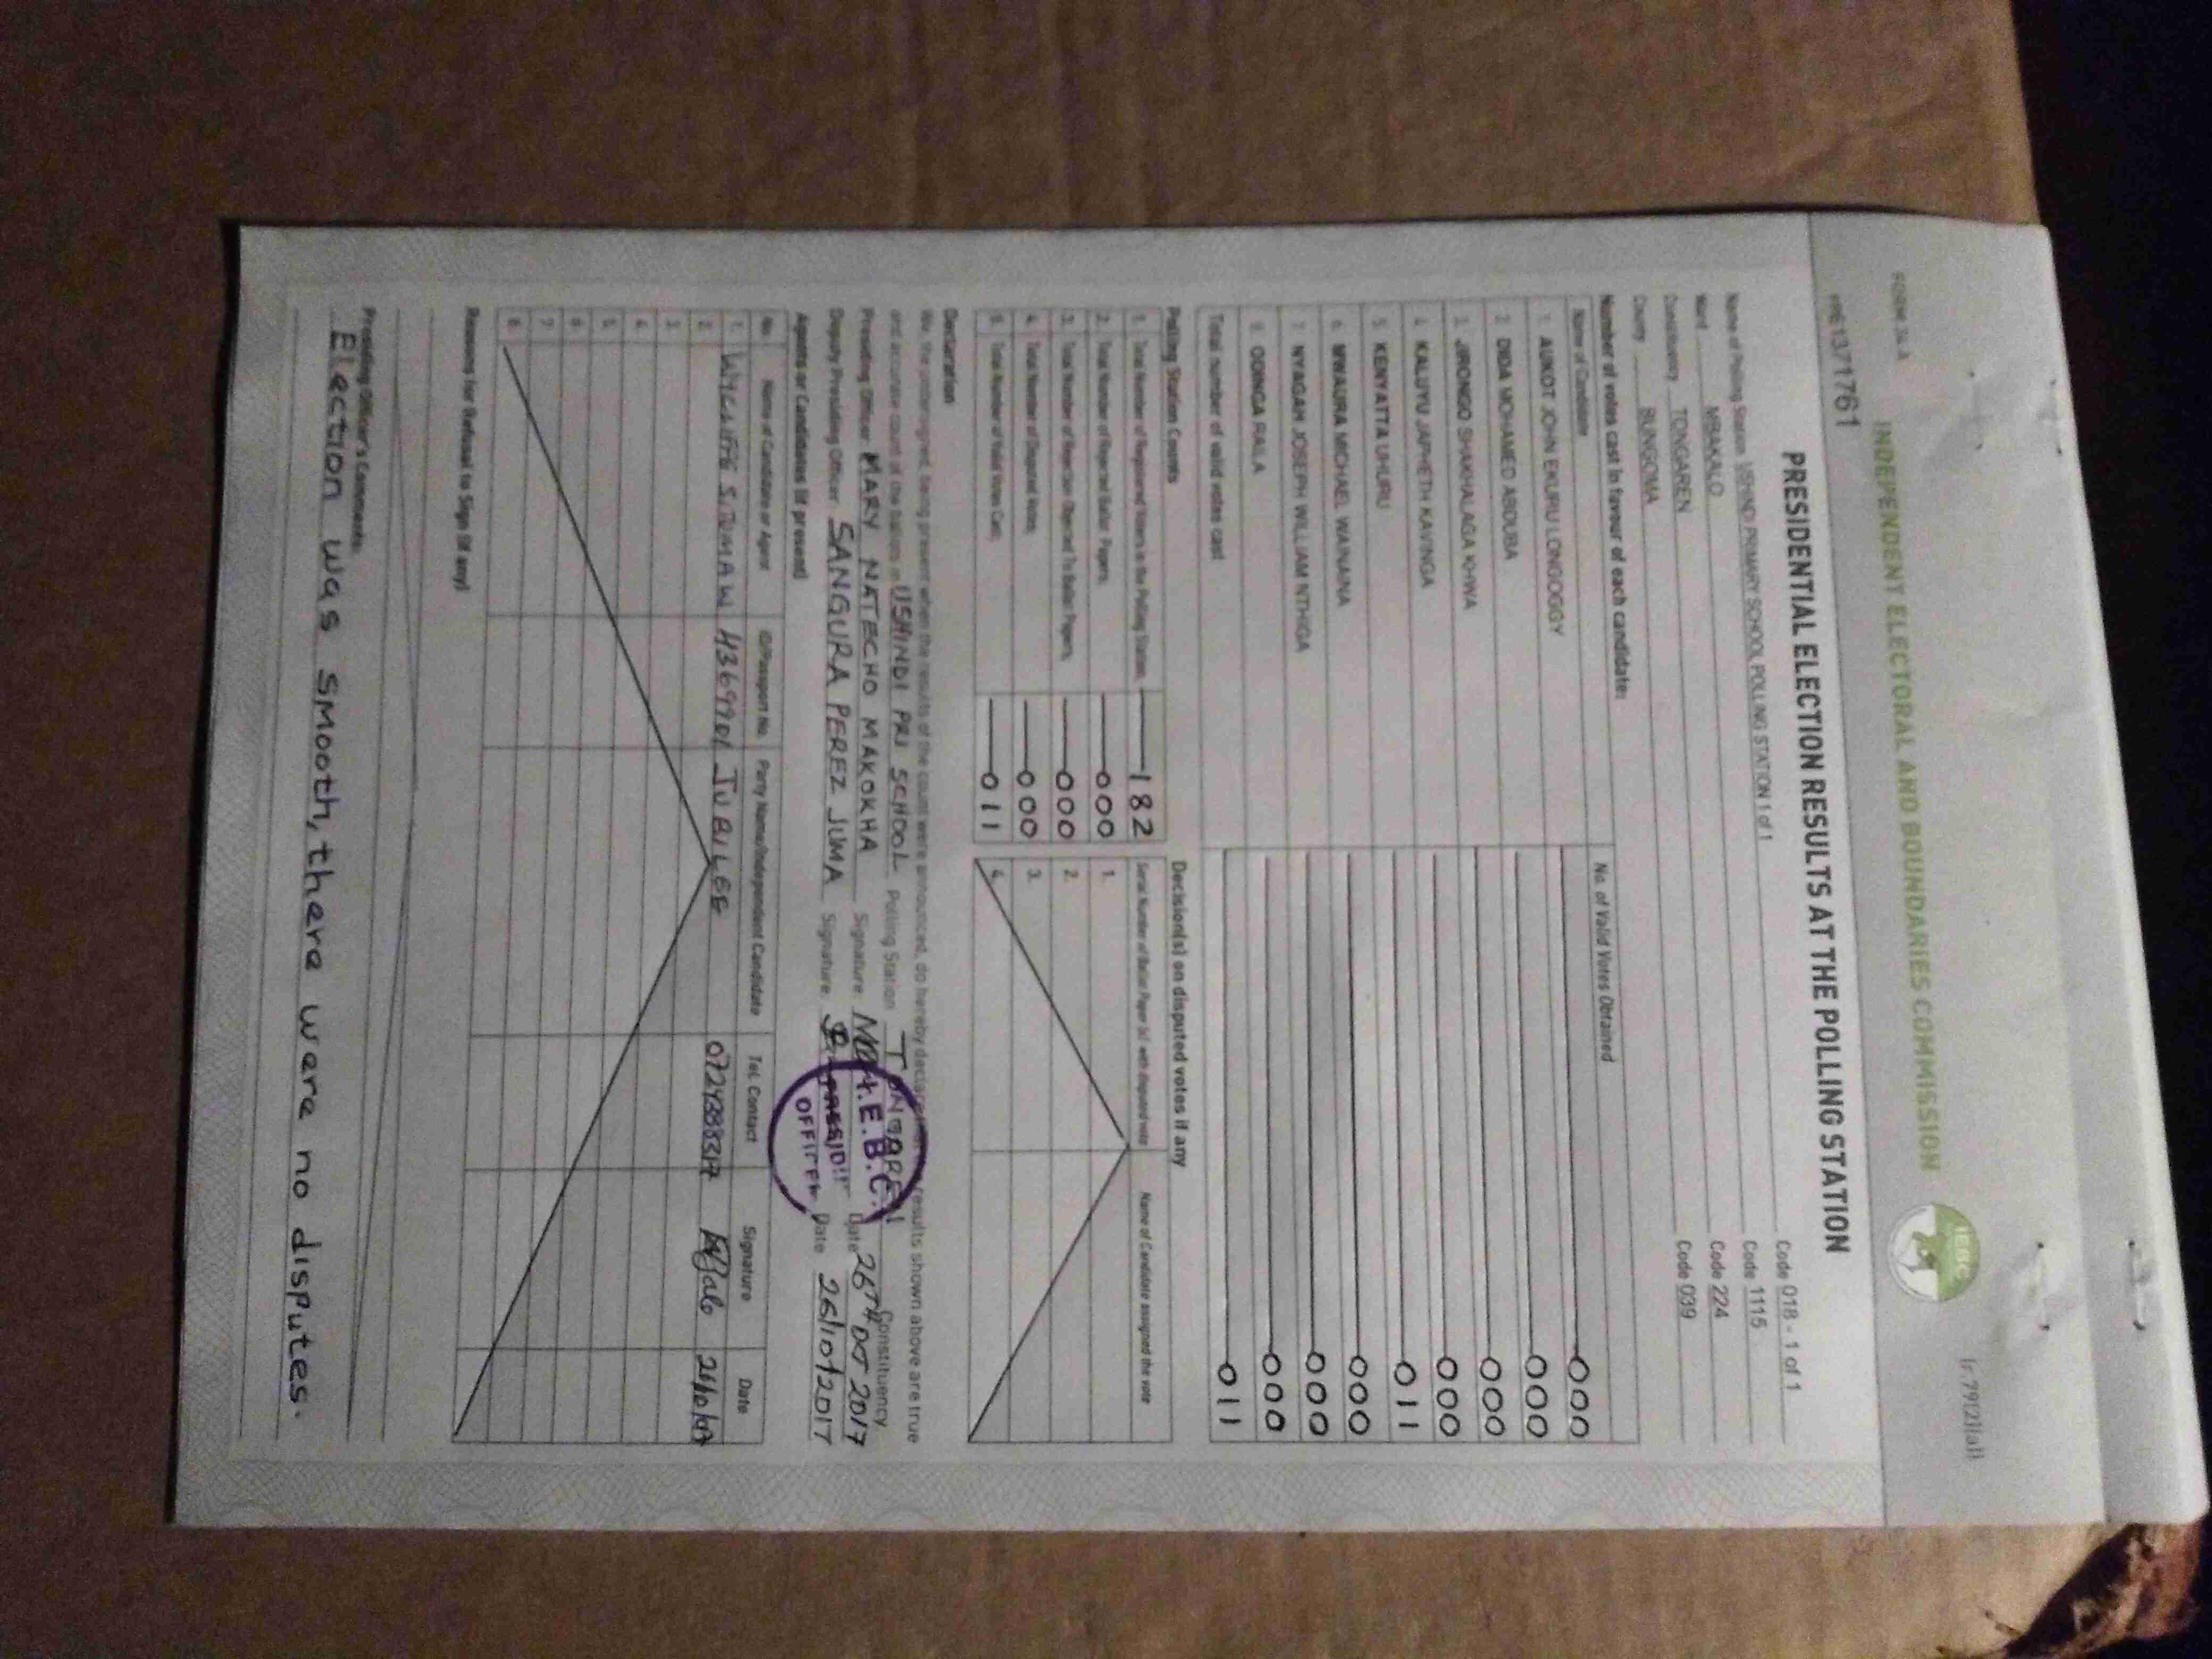 FORM 34 A
(r.79(2)(a))
INDEPENDENT ELECTORAL AND BOUNDARIES COMMISSION
IEBC
PRE1371761
PRESIDENTIAL ELECTION RESULTS AT THE POLLING STATION
Name of Polling Station USHINDI PRIMARY SCHOOL POLLING STATION 1 of 1 Code 018 - 1 of 1
Ward MBAKALO Code 1115
Constituency TONGAREN Code 224
County BUNGOMA Code 039
Number of votes cast in favour of each candidate:
Name of Candidate No. of Valid Votes Obtained
1. AUKOT JOHN EKURU LONGOGGY 000
2. DIDA MOHAMED ABDUBA 000
3. JIRONGO SHAKHALAGA KHWA 000
4. KALUYU JAPHETH KAVINGA 000
5. KENYATTA UHURU 011
6. MWAURA MICHAEL WAINAINA 000
7. NYAGAH JOSEPH WILLIAM NTHIGA 000
8. ODINGA RAILA 000
Total number of valid votes cast 011
Polling Station Counts
1. Total Number of Registered Voters in the Polling Station 182
2. Total Number of Rejected Ballot Papers 000
3. Total Number of Rejection Objected To Ballot Papers 000
4. Total Number of Disputed Votes 000
5. Total Number of Valid Votes Cast 011
Decision(s) on disputed votes if any
Serial Number of Ballot Paper (s) with disputed vote Name of Candidate assigned the vote
1.
2.
3.
4.
Declaration
We the undersigned, being present when the results of the count were announced, do hereby declare that the results shown above are true
and accurate count of the ballots in USHINDI PRI SCHOOL Polling Station TONGAREN Constituency
Presiding Officer MARY NATECHO MAKOKHA Signature Date 26TH OCT 2017
Deputy Presiding Officer SANGURA PEREZ JUMA Signature Date 26/10/2017
I.E.B.C.
Agents or Candidates (if present)
No. Name of Candidate or Agent ID/Passport No. Party Name/Independent Candidate Tel. Contact Signature Date
1. WYCLIFFE S. JUMA W JUBILEE
2.
3.
4.
5.
6.
7.
8.
Reasons for Refusal to Sign (if any)
Presiding Officer's Comments:
Election was smooth, there were no disputes.